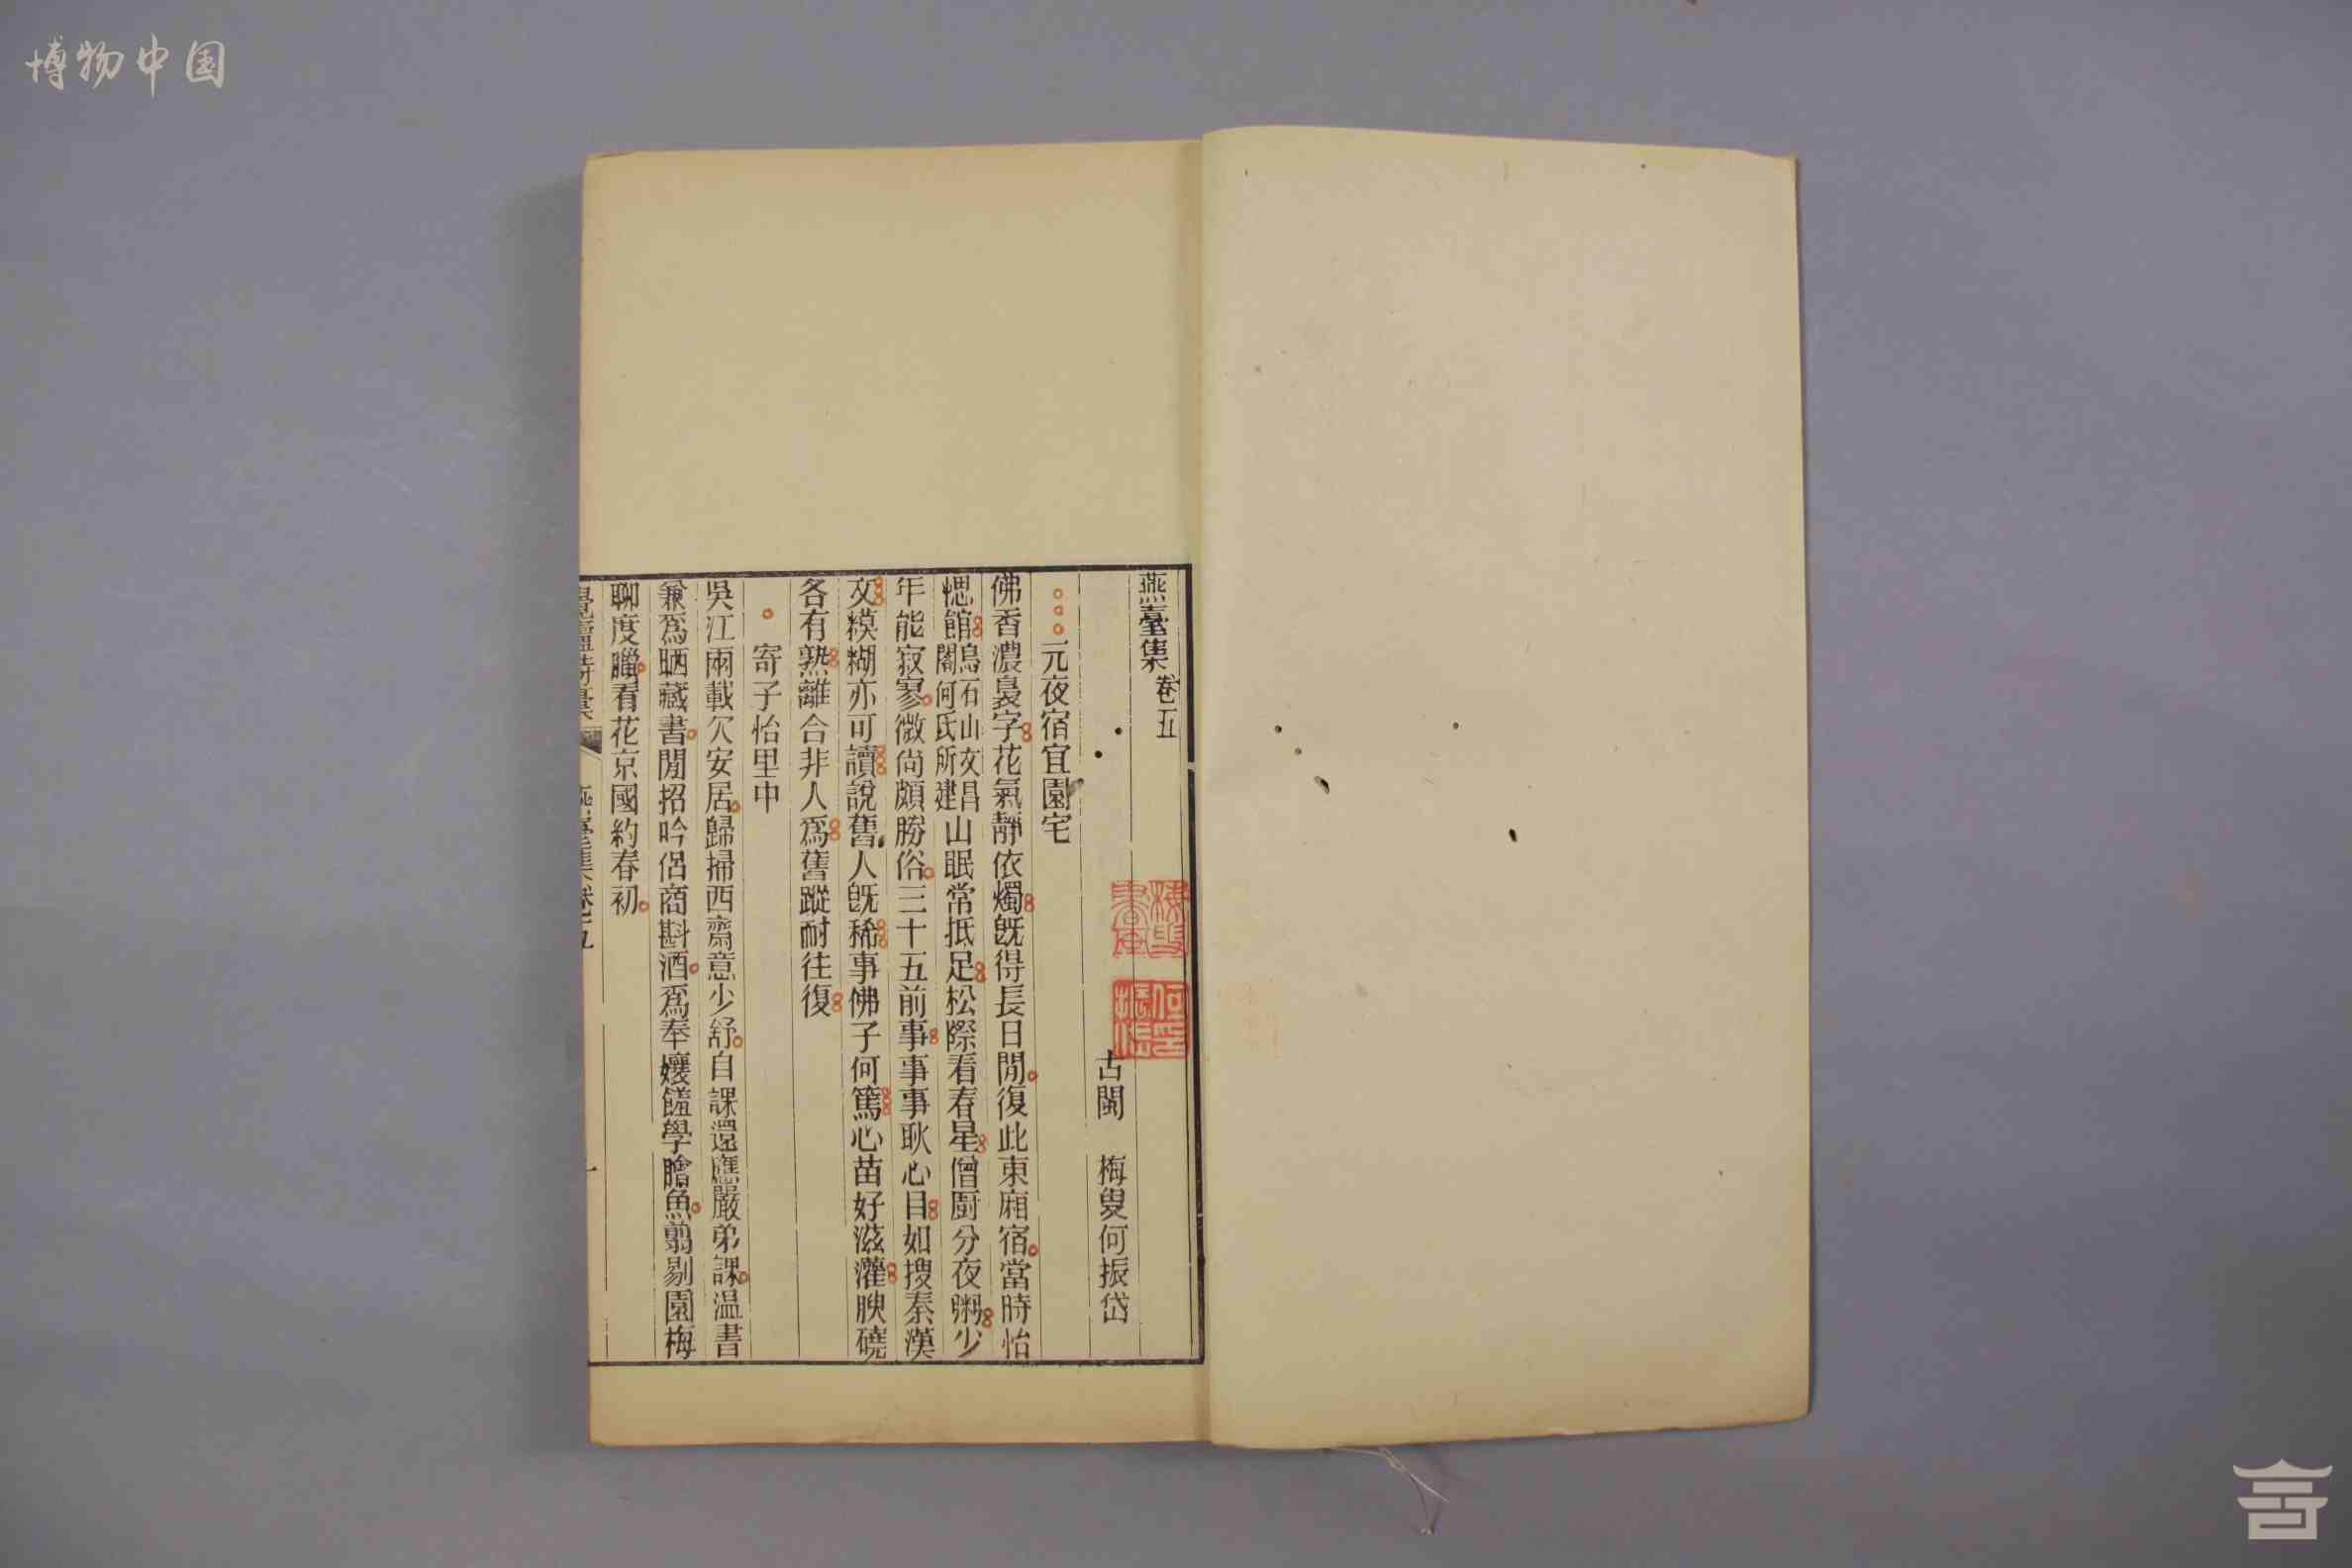 博物中国
燕臺集 卷五
古閩 梅叟何振岱
元夜宿宜園宅
佛香濃裊字花氣靜依燭旣得長日閒復此東廂宿當時怡
憁館烏石山文昌閣何氏所建山眠常抵足松際看春星僧厨分夜粥少
年能寂寥微尚頗勝俗三十五前事事事耿心目如搜秦漢
文糢糊亦可讀說舊人旣稀事佛子何篤心苗好滋灌腴磽
各有熟離合非人爲舊蹤耐往復
寄子怡里中
吳江兩載欠安居歸掃西齋意少舒自課還應嚴弟課温書
兼爲晒藏書閒招吟侶商斟酒爲奉孃饈學膾魚翦剔園梅
聊度臘看花京國約春初
燕臺集卷五
一
何振岱印